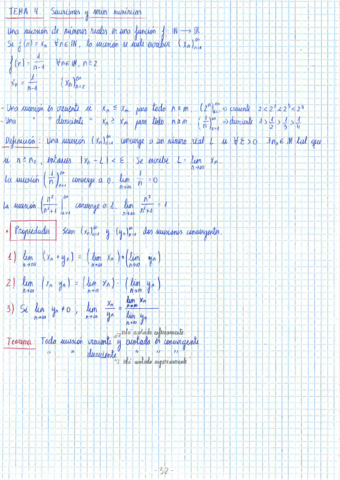 TEMA 4 Sucesiones y series numéricas
Una sucesión de números reales es una función f: ℕ → ℝ
Si f(n) = xₙ ∀n∈ℕ, la sucesión se suele escribir (xₙ)ₙ₌₁^∞
f(n) = 1/(n-1) ∀n∈ℕ, n≥2
xₙ = 1/(n-1) (xₙ)ₙ₌₂^∞
- Una sucesión es creciente si xₙ ≤ xₘ para todo n≤m (2ⁿ)ₙ₌₁^∞ → creciente 2<2²<2³<2⁴
- Una " " decreciente " xₙ ≥ xₘ para todo n≤m (1/n)ₙ₌₁^∞ → decreciente 1>1/2>1/3>1/4
Definición: Una sucesión (xₙ)ₙ₌₁^∞ converge a un número real L si ∀ε>0 ∃n₀∈ℕ tal que
si n≥n₀, entonces |xₙ-L| < ε. Se escribe L = lim n→∞ xₙ
La sucesión (1/n)ₙ₌₁^∞ converge a 0. lim n→∞ 1/n = 0
La sucesión (n²/(n²+1))ₙ₌₁^∞ converge a 1. lim n→∞ n²/(n²+1) = 1
• Propiedades Sean (xₙ)ₙ₌₁^∞ y (yₙ)ₙ₌₁^∞ dos sucesiones convergentes.
1) lim n→∞ (xₙ + yₙ) = (lim n→∞ xₙ) + (lim n→∞ yₙ)
2) lim n→∞ (xₙ yₙ) = (lim n→∞ xₙ) · (lim n→∞ yₙ)
3) Si lim n→∞ yₙ ≠ 0, lim n→∞ xₙ/yₙ = lim n→∞ xₙ / lim n→∞ yₙ
está acotada superiormente
Teorema: Toda sucesión creciente y acotada es convergente
" " decreciente " " "
está acotada
- 32 -